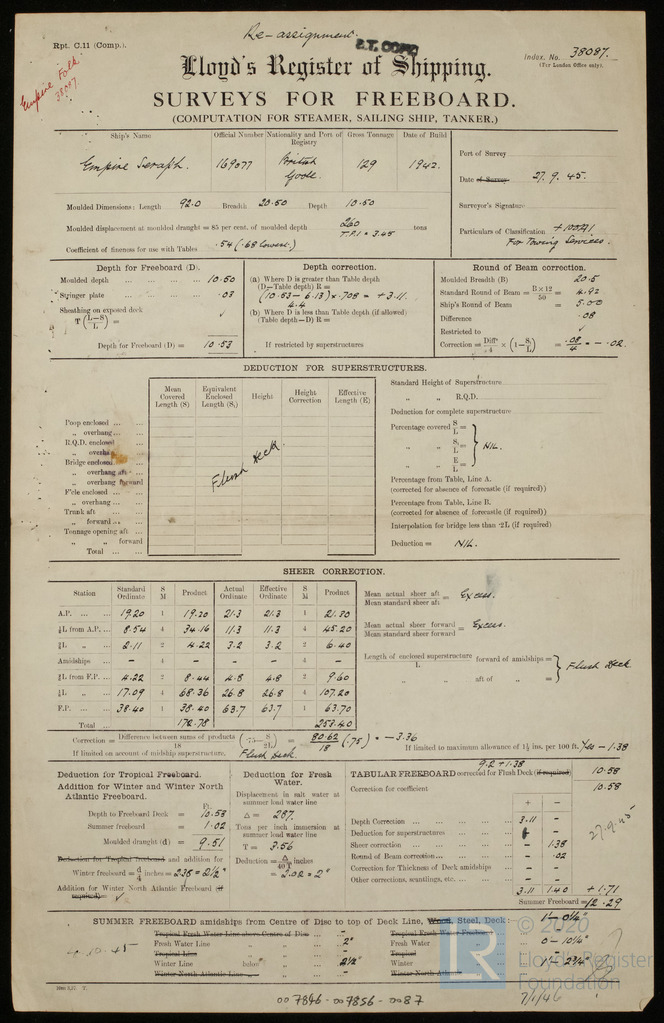 Re-assignment.
Rpt. C.11 (Comp.).
Index. No. 38087.
(For London Office only).
Empire Folk
38087
Lloyd's Register of Shipping.
SURVEYS FOR FREEBOARD.
(COMPUTATION FOR STEAMER, SAILING SHIP, TANKER.)
Ship's Name Official Number Nationality and Port of Registry Gross Tonnage Date of Build
Empire Seraph. 169077 British Goole. 129 1942.
Port of Survey
Date of Survey 27. 9. 45.
Surveyor's Signature
Particulars of Classification +100A1
For Towing Services.
Moulded Dimensions: Length 92.0 Breadth 20.50 Depth 10.50
Moulded displacement at moulded draught = 85 per cent. of moulded depth 260 tons
T.P.I = 3.45
Coefficient of fineness for use with Tables .54 (.68 lowest.)
Depth for Freeboard (D).
Moulded depth 10.50
Stringer plate .03
Sheathing on exposed deck
T (L-S/L) =
Depth for Freeboard (D) = 10.53
Depth correction.
(a) Where D is greater than Table depth
(D-Table depth) R =
(10.53 - 6.13) × .708 = + 3.11.
4.4
(b) Where D is less than Table depth (if allowed)
(Table depth-D) R =
If restricted by superstructures
Round of Beam correction.
Moulded Breadth (B) 20.5
Standard Round of Beam = B × 12/50 = 4.92
Ship's Round of Beam = 5.00
Difference .08
Restricted to
Correction = Diff/4 × (1-S1/L) = .08/4 = - .02
DEDUCTION FOR SUPERSTRUCTURES.
Mean Covered Length (S) Equivalent Enclosed Length (S1) Height Height Correction Effective Length (E)
Poop enclosed
„ overhang
R.Q.D. enclosed
„ overhang
Bridge enclosed
„ overhang aft
„ overhang forward
F'cle enclosed
„ overhang
Trunk aft
„ forward
Tonnage opening aft
„ „ forward
Total
Flush Deck.
Standard Height of Superstructure
„ „ R.Q.D.
Deduction for complete superstructure
Percentage covered S/L =
„ „ S1/L = NIL.
„ „ E/L =
Percentage from Table, Line A.
(corrected for absence of forecastle (if required))
Percentage from Table, Line B.
(corrected for absence of forecastle (if required))
Interpolation for bridge less than ·2L (if required)
Deduction = NIL.
SHEER CORRECTION.
Station Standard Ordinate S M Product Actual Ordinate Effective Ordinate S M Product
A.P. 19.20 1 19.20 21.3 21.3 1 21.30
⅙L from A.P. 8.54 4 34.16 11.3 11.3 4 45.20
⅓L „ 2.11 2 4.22 3.2 3.2 2 6.40
Amidships - 4 - - - 4 -
⅓L from F.P. 4.22 2 8.44 4.8 4.8 2 9.60
⅙L „ 17.09 4 68.36 26.8 26.8 4 107.20
F.P. 38.40 1 38.40 63.7 63.7 1 63.70
Total 172.78 253.40
Mean actual sheer aft / Mean standard sheer aft = Excess.
Mean actual sheer forward / Mean standard sheer forward = Excess.
Length of enclosed superstructure / L forward of amidships =
„ „ aft of „ =
Flush Deck
Correction = Difference between sums of products / 18 (·75 - S/2L) = 80.62/18 (.75) = - 3.36
If limited on account of midship superstructure. Flush Deck.
If limited to maximum allowance of 1½ ins. per 100 ft. Yes - 1.38
Deduction for Tropical Freeboard.
Addition for Winter and Winter North Atlantic Freeboard.
Ft.
Depth to Freeboard Deck = 10.53
Summer freeboard = 1.02
Moulded draught (d) = 9.51
Deduction for Tropical freeboard and addition for
Winter freeboard = d/4 inches = 2.38 = 2½"
Addition for Winter North Atlantic Freeboard (if required) =
Deduction for Fresh Water.
Displacement in salt water at summer load water line
Δ = 287.
Tons per inch immersion at summer load water line
T = 3.56
Deduction = Δ/40T inches
= 2.02 = 2"
9.2 + 1.38
TABULAR FREEBOARD corrected for Flush Deck (if required) 10.58
Correction for coefficient 10.58
+ -
Depth Correction 3.11 -
Deduction for superstructures -
Sheer correction - 1.38
Round of Beam correction - .02
Correction for Thickness of Deck amidships - -
Other corrections, scantlings, etc. - -
3.11 1.40 + 1.71
Summer Freeboard = 12.29
27.9.45
SUMMER FREEBOARD amidships from Centre of Disc to top of Deck Line, Wood, Steel, Deck: 1'- 0¼"
Tropical Fresh Water Line above Centre of Disc -
Fresh Water Line „ „ 2"
Tropical Line „ „ -
Winter Line below „ 2½"
Winter North Atlantic Line „ „ -
Tropical Fresh Water Freeboard -
Fresh Water „ 0 - 10¼"
Tropical „
Winter „ 1'- 2¾"
Winter North Atlantic „
10.45
© 2020
LR
Lloyd's Register
Foundation
7/1/46
007846-007856-0087